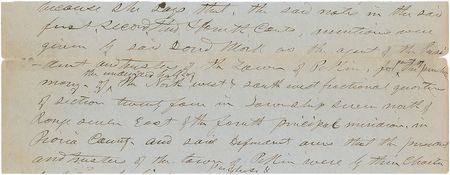 because she says that, the said note in the said
first, second, third & fourth Counts, mentioned were
given by said David Mark as the agent of the Presi-
dent and trustees of the Town of Pekin, for the purchase
money of the undivided half of the North west & south west fractional quarter
of section twenty four in Township seven north of
Range seven East of the fourth principal meridian, in
Peoria County and said Defendant avers that the president
and trustees of the town of Pekin were by their Charter